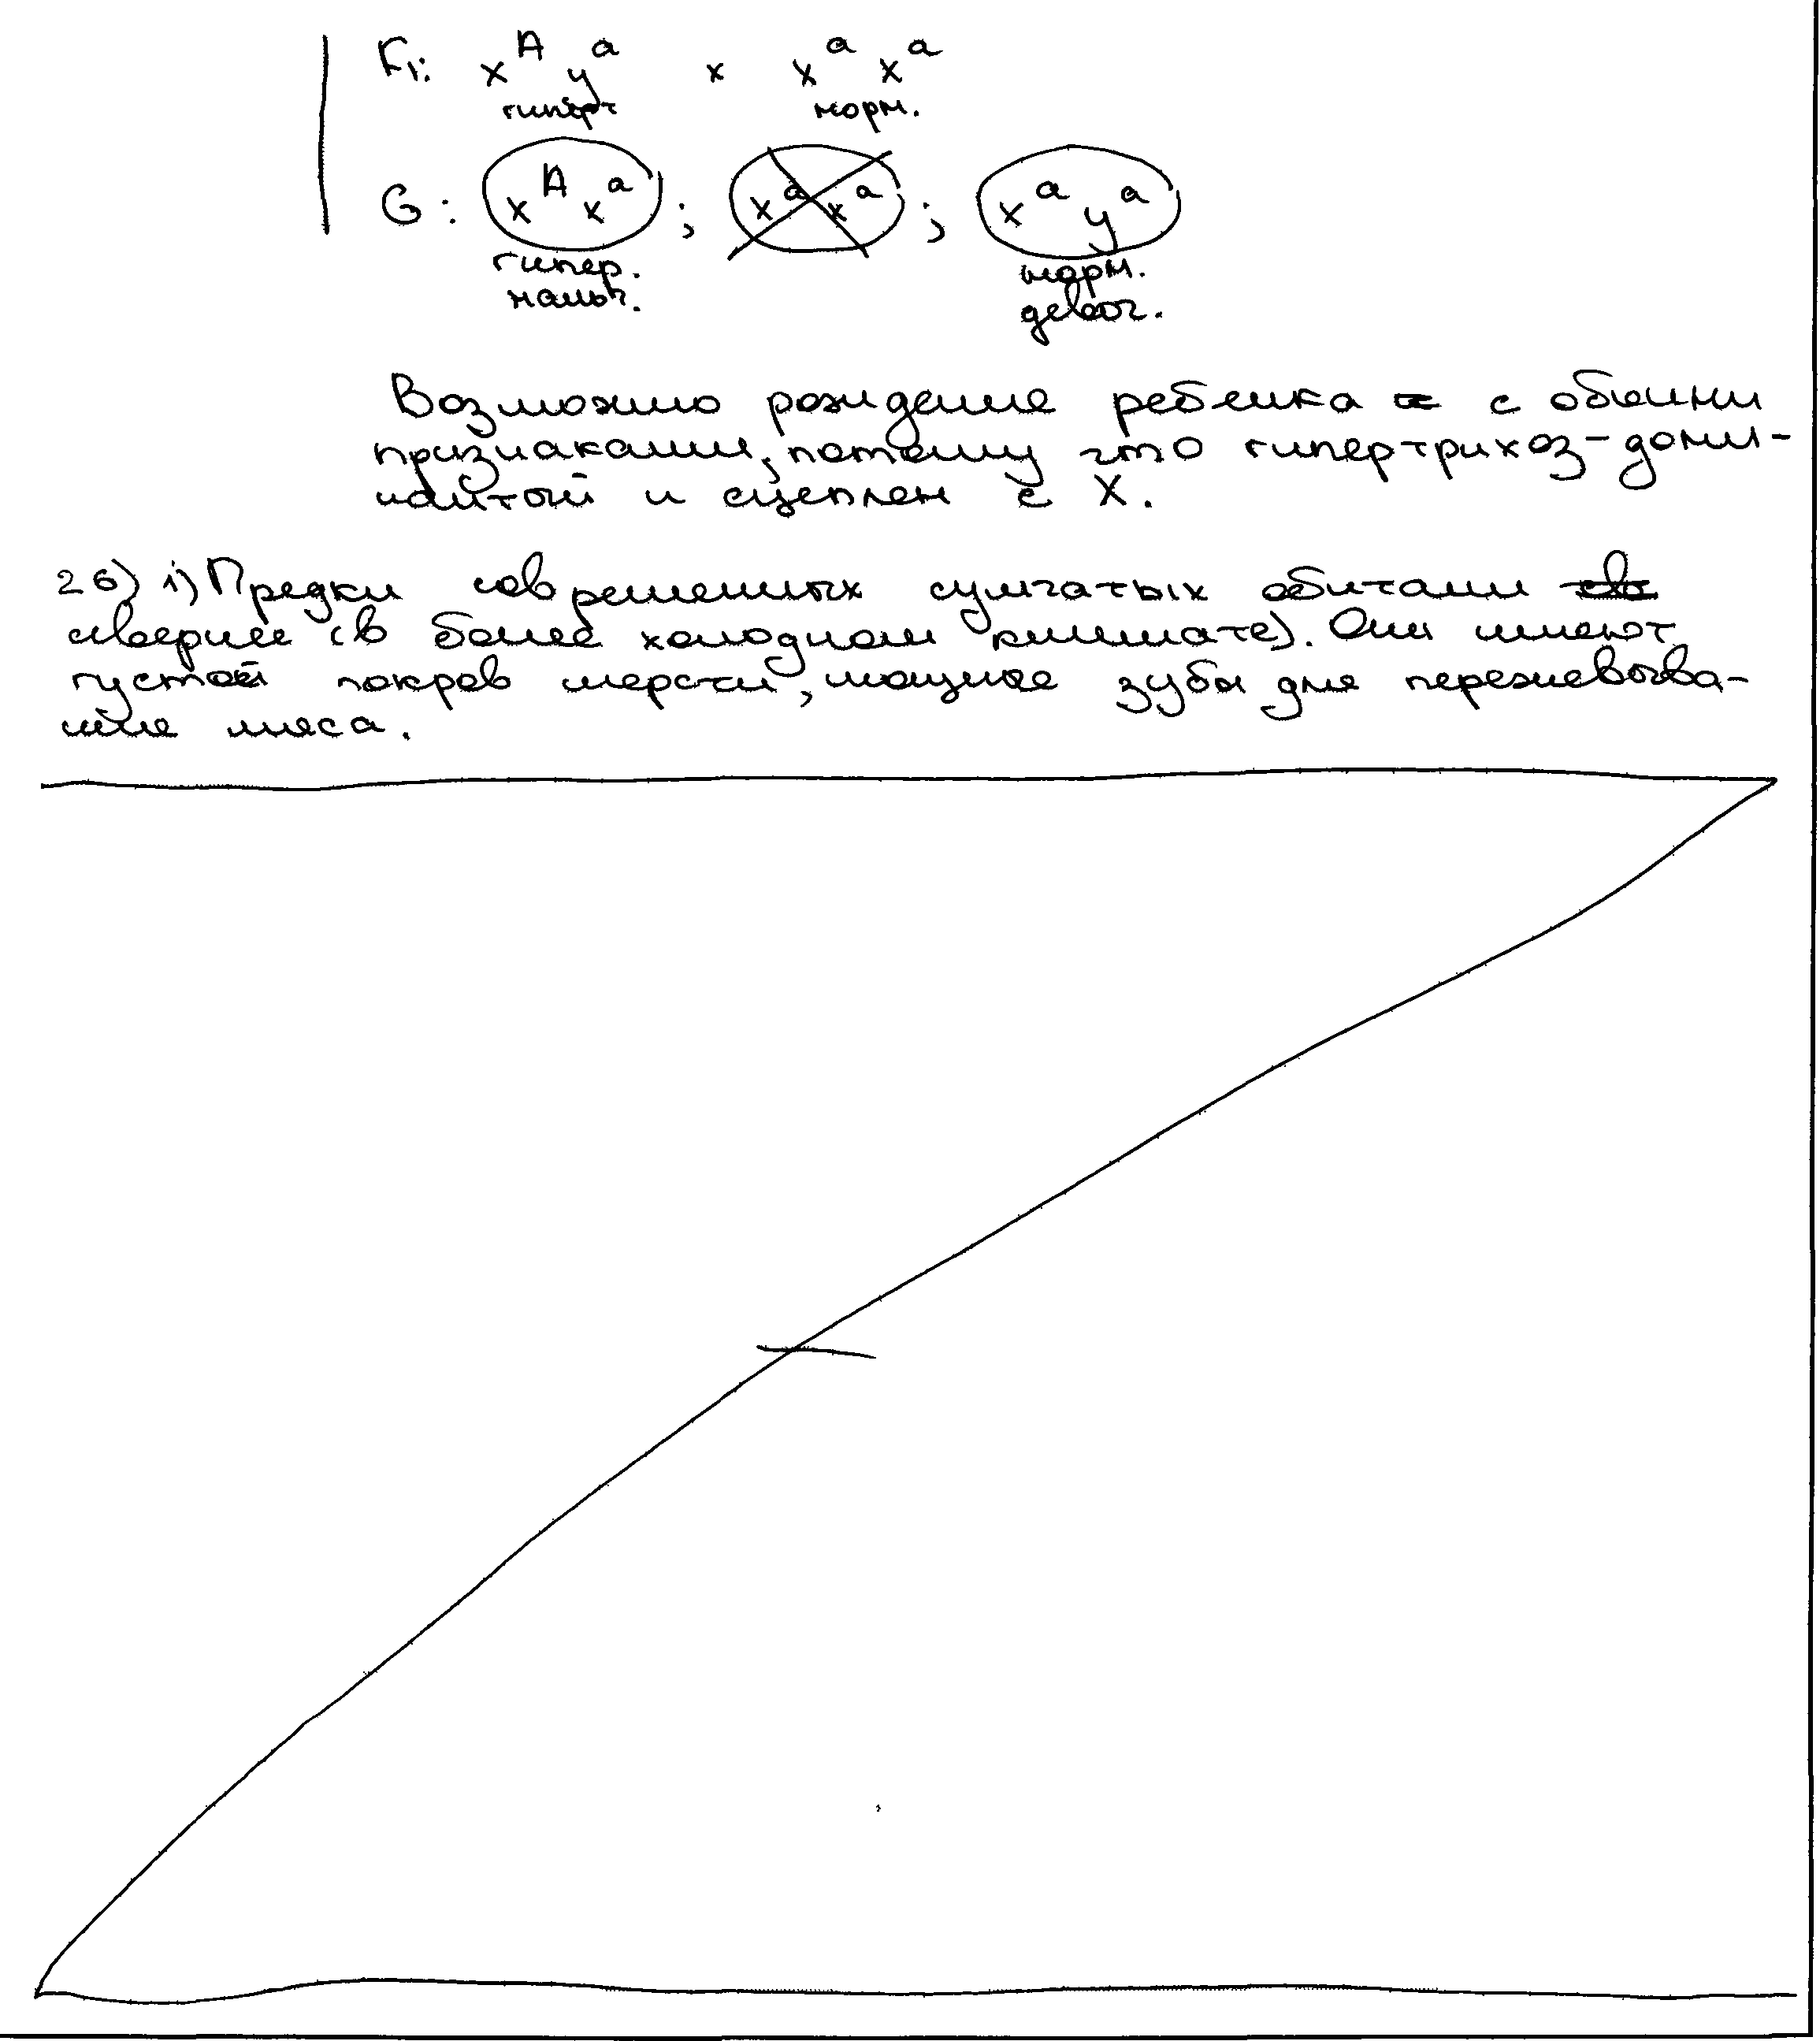 F₁: x^A y^a × x^a x^a
гиперт норм.
G: x^A x^a ; x^a x^a ; x^a y^a
гипер. норм.
мальч. девоч.
Возможно рождение ребенка с обоими
признаками, потому что гипертрихоз-доми-
нантой и сцеплен с X.
26) 1) Предки современных сумчатых обитали
севернее (в более холодном климате). Они имеют
густой покров шерсти, мощные зубы для пережевыва-
ние мяса.